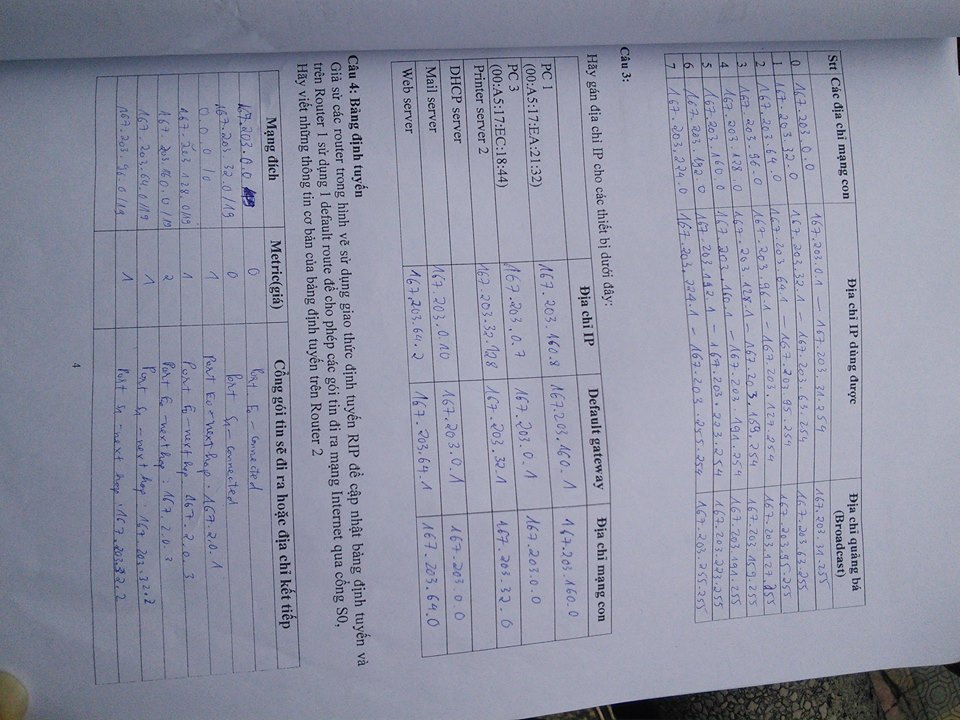 Stt Các địa chỉ mạng con Địa chỉ IP dùng được Địa chỉ quảng bá (Broadcast)
0 167.203.0.0 167.203.0.1 — 167.203.31.254 167.203.31.255
1 167.203.32.0 167.203.32.1 — 167.203.63.254 167.203.63.255
2 167.203.64.0 167.203.64.1 — 167.203.95.254 167.203.95.255
3 167.203.96.0 167.203.96.1 — 167.203.127.254 167.203.127.255
4 167.203.128.0 167.203.128.1 — 167.203.159.254 167.203.159.255
5 167.203.160.0 167.203.160.1 — 167.203.191.254 167.203.191.255
6 167.203.192.0 167.203.192.1 — 167.203.223.254 167.203.223.255
7 167.203.224.0 167.203.224.1 — 167.203.255.254 167.203.255.255
Câu 3:
Hãy gán địa chỉ IP cho các thiết bị dưới đây:
Địa chỉ IP Default gateway Địa chỉ mạng con
PC 1 (00:A5:17:EA:21:32) 167.203.160.8 167.203.160.1 167.203.160.0
PC 3 (00:A5:17:EC:18:44) 167.203.0.7 167.203.0.1 167.203.0.0
Printer server 2 167.203.32.128 167.203.32.1 167.203.32.0
DHCP server
Mail server 167.203.0.10 167.203.0.1 167.203.0.0
Web server 167.203.64.2 167.203.64.1 167.203.64.0
Câu 4: Bảng định tuyến
Giả sử các router trong hình vẽ sử dụng giao thức định tuyến RIP để cập nhật bảng định tuyến và
trên Router 1 sử dụng 1 default route để cho phép các gói tin đi ra mạng Internet qua cổng S0,
Hãy viết những thông tin cơ bản của bảng định tuyến trên Router 2
Mạng đích Metric(giá) Cổng gói tin sẽ đi ra hoặc địa chỉ kết tiếp
167.203.0.0 0 Port E0 - connected
167.203.32.0/19 0 Port S1 - connected
0.0.0.0/0 1 Port E0 - next hop: 167.2.0.1
167.203.128.0/19 1 Port E0 - next hop: 167.2.0.3
167.203.160.0/19 2 Port E0 - next hop: 167.2.0.3
167.203.64.0/19 1 Port S1 - next hop: 167.203.32.2
167.203.96.0/19 1 Port S1 - next hop: 167.203.32.2
4